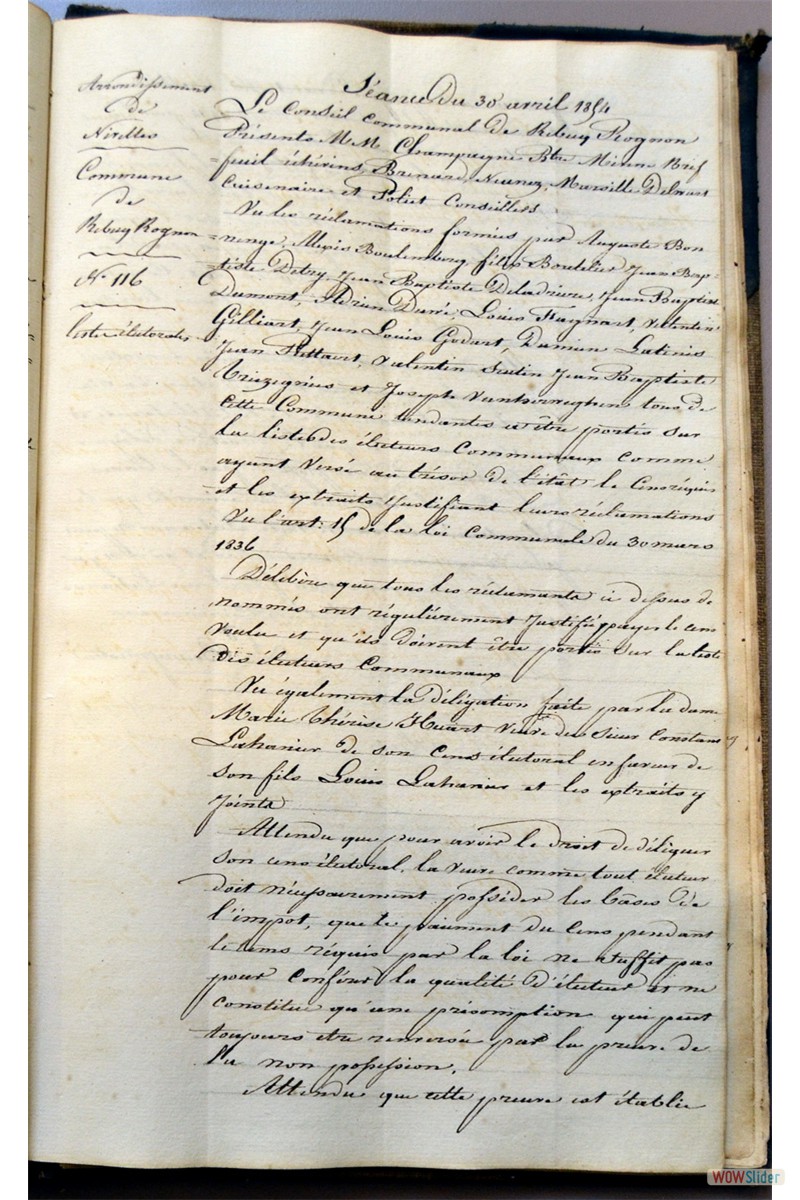 Arrondissement
de
Nivelles
Commune
de
Rebecq Rognon
N° 116
liste électorale
Séance du 30 avril 1854
Le Conseil communal de Rebecq Rognon
Présents M.M. Champagne Bte Miron Brif
=feuil échevins, Marsille Delwart
Cuisenaire et Poliet Conseillers
Vu les réclamations formées par Auguste Bon
=nenge, Alexis Boulenberg fils Boutelier Jean Bap=
=tiste Detry, Jean Baptiste Deladrière, Jean Baptiste
Dumont, Adrien Duré, Louis Hagnart, Valentin
Gilliart, Jean Louis Godart, Damien Latinis
Jean Valentin Seutin Jean Baptiste
et Joseph tous de
cette Commune tendantes à être portés sur
la liste des électeurs Communaux comme
ayant versé au trésor de l'état le Cens réquis
et les extraits justifiant leurs réclamations
Vu l'art: 15 de la loi Communale du 30 mars
1836
Délibère que tous les réclamants ci dessus de
nommés ont régulièrement justifié payer le cens
voulu et qu'ils doivent être portés sur la liste
des électeurs Communaux
Vu également la délégation faite par la dame
Marie Thérèse Huart Veuve du Sieur Constant
Lahanier de son Cens électoral en faveur de
son fils Louis Lahanier et les extraits y
joints
Attendu que pour avoir le droit de déléguer
son cens électoral, la veuve comme tout électeur
doit nécessairement posséder les bases de
l'impot, que le paiement du Cens pendant
le tems réquis par la loi ne suffit pas
pour conférer la qualité d'électeur et ne
constitue qu'une présomption qui peut
toujours etre renversée par la preuve de
la non possession.
Attendu que cette preuve est établie
WOWSlider